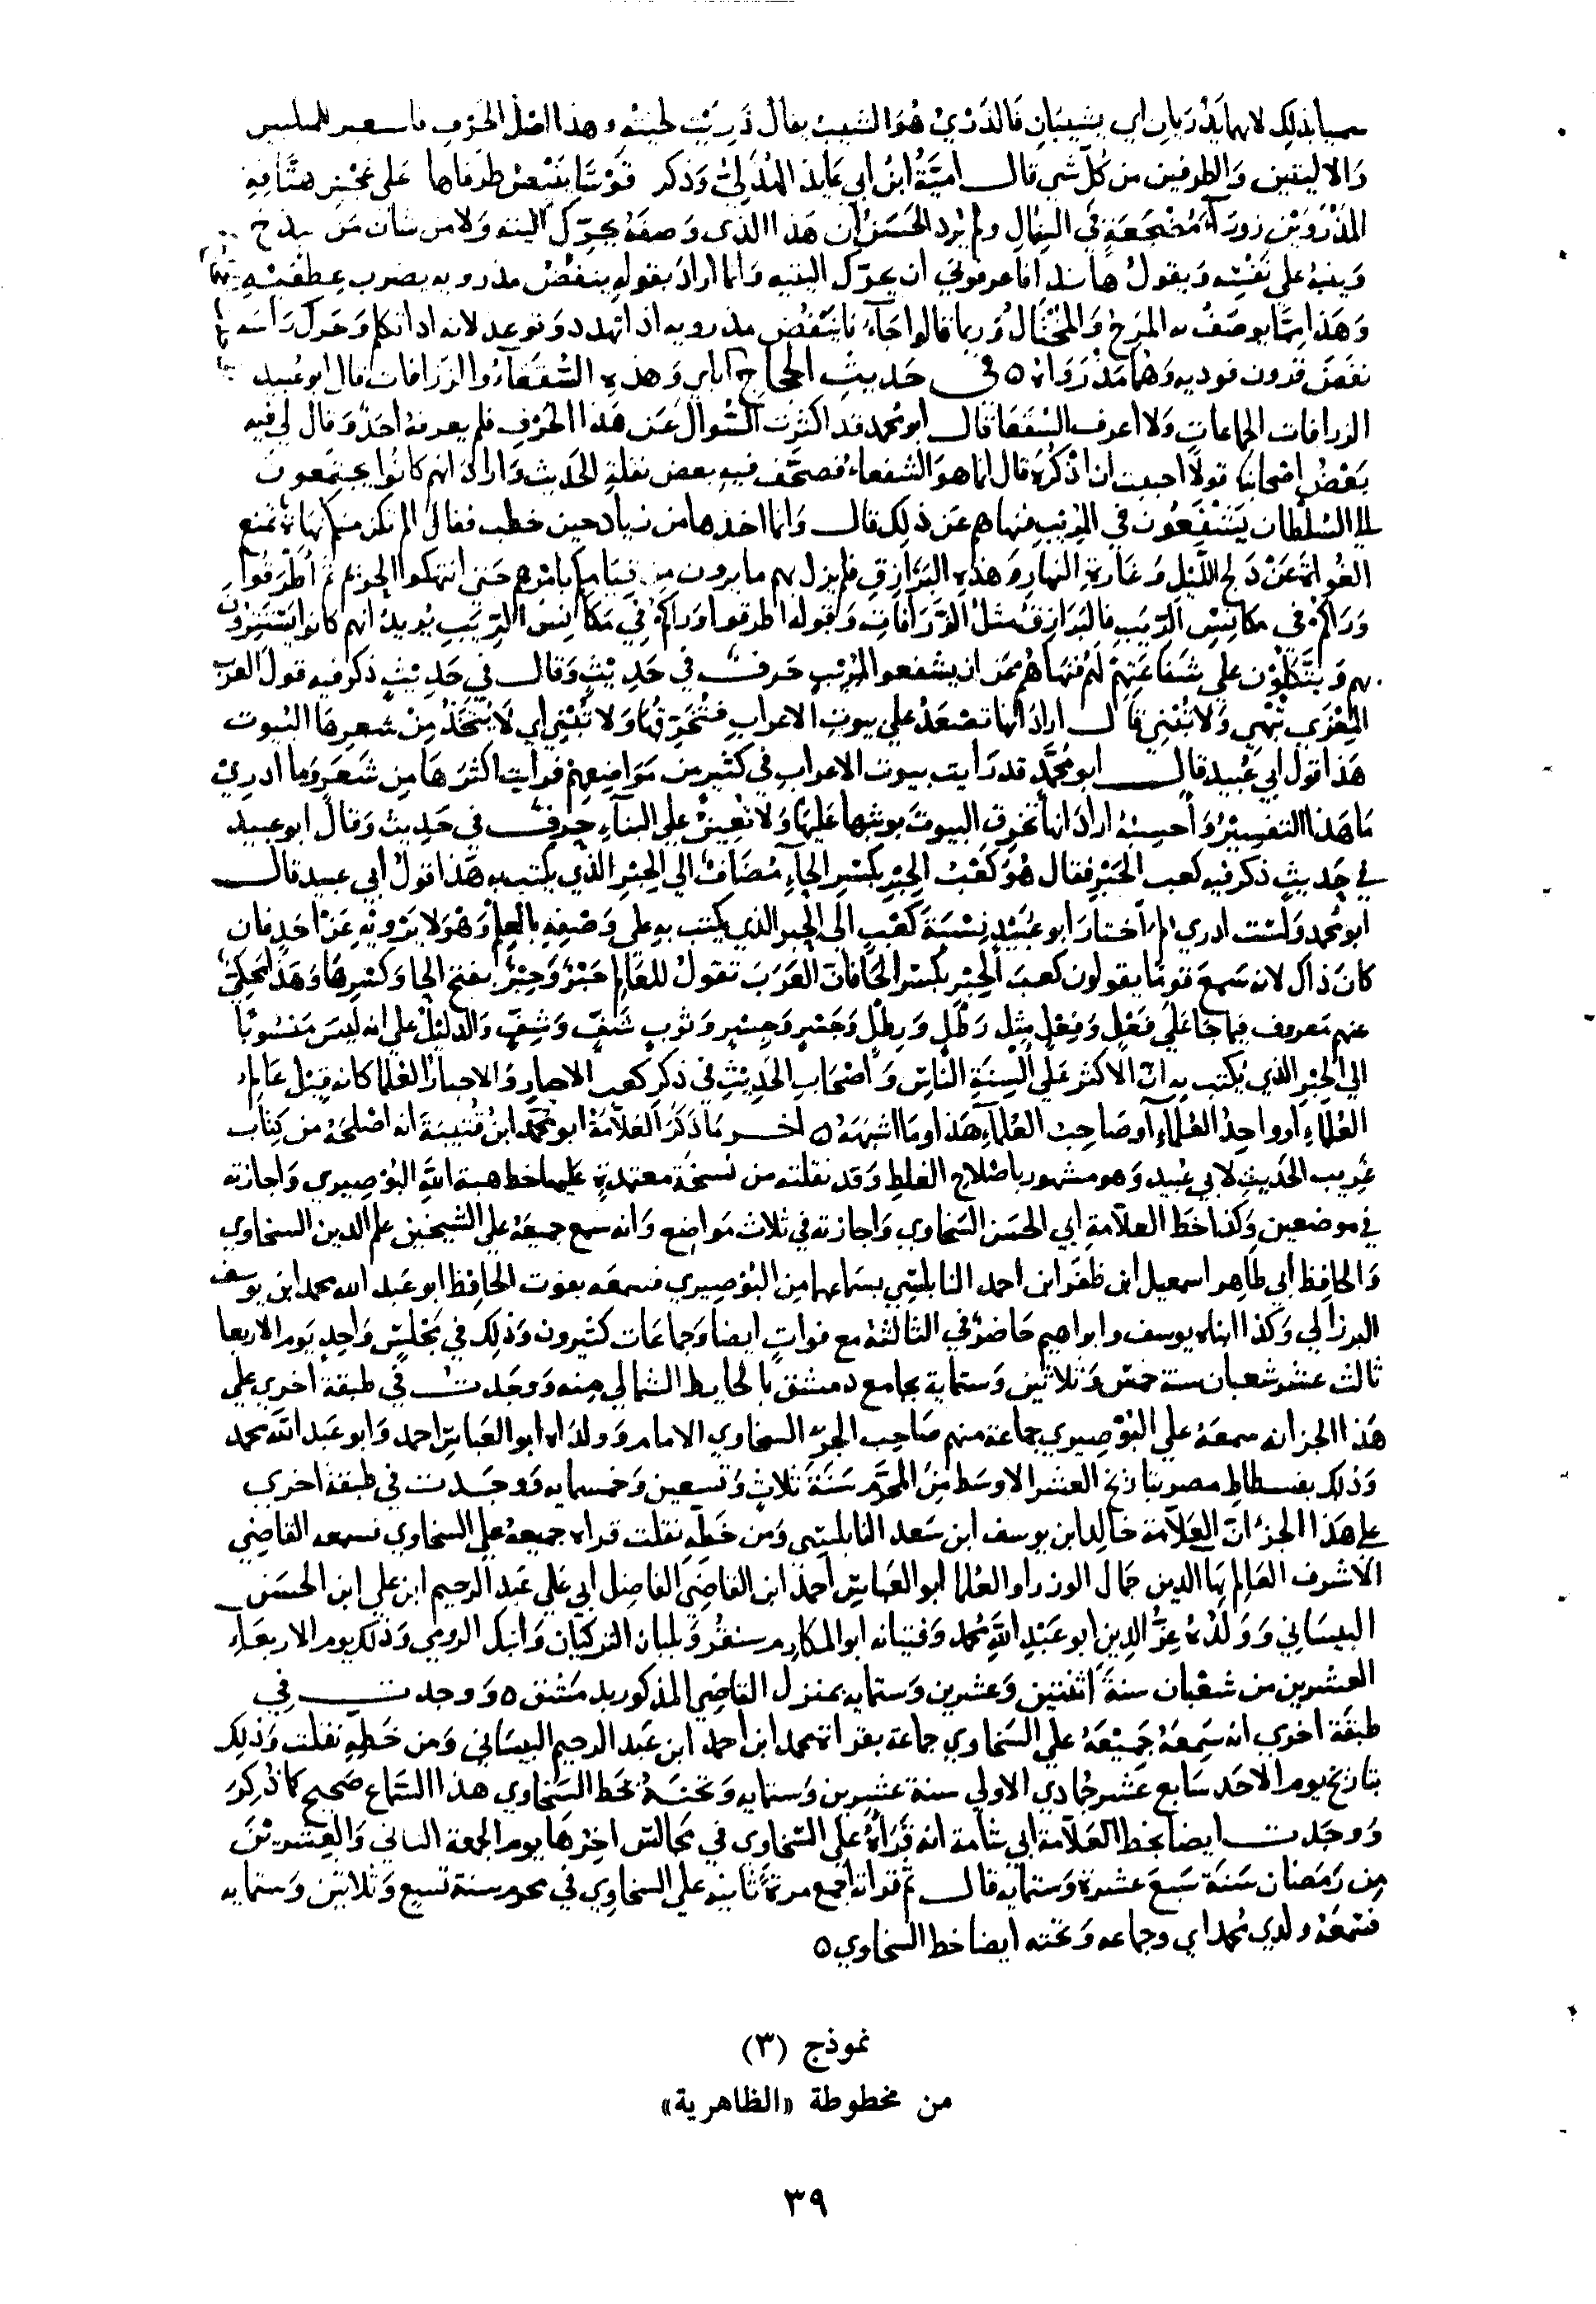 سميا بذلك لانهما يَذْرَيان اي يشيبَانِ فَالذَرْيُ هُوَ الشيب يقال ذَرِيَتْ لحيته وهذا اصْل الحَرْف
وَالاليتين وَالطرفين من كُلّ شي قال اميَّةُ ابنُ ابي عَايذ الهُذَليّ وَذكر قَوْسًا يَنْبعن طرفاها عَلى عَجْس هتَّافةِ
المَذْرَوَيْنِ زورَآءَ مُضْجَعَةٍ في الشِمَالِ ولم يُرد الحَسَنُ ان هَذا الذي وَصفَهُ يحرّك اليته وَلا من شان مَن يبذخ
وَينبه على نَفْسِه وَيقولُ هاندا فاعرفوني ان يحرّك اليتيه وَانما ارادَ بقوله ينفُضُ مذرويه يضرب عِطفَيْهِ
وَهَذا مِمَّا يوصَفُ به المَرَح وَالمُخْتَالُ وَربما قالوا جَآءَ نَا يَنْفُضُ مذرويه اذا تهدد وَتوعد لانه اذا تكلم وَحرك رَاسَه
نفَضَ قرون فوديه وَهُمَا مَذْرَوَاهُ ٥ في حَديثِ الحجّاج اياي وَهذهِ السُّقفَآءُ والزرَافات قال ابو عُبيد
الزرافات الجماعات وَلا اعرف السُّقَفَا قال ابو محمد قد اكثرت السُّوالَ عَن هَذا الحَرْف فلم يعرفهُ احَدٌ وَقال لي فيه
بَعْضُ اصْحابنا قولًا احببت ان اذْكُرَهُ قال انما هوَ الشفعاء فصحَّف فيه بعض نقلةِ الحَديث وَارادَ انهم كانُوا يجتمعون
الى السُلْطان يَشْفَعُون في المُرْيب فنهاهم عَن ذلك قال وَانما اخذها من زياد حين خطب فقال الم تكن منكم نهاة تمنع
الغُواةَ عَنْ دَلج اللَّيْلِ وَغَارةِ النهارِ وَهذهِ البَرَازِقِ فلم يزل بهم ما يرون مِن قيَامكم بامْرهم حَتى انتهكوا الحَريم ثم اَطْرَقُوا
وَرَاكُمْ في مكانِسِ الرِّيَبِ فالبَرَازقُ مثلُ الزَّرَافات وَقوله اطرقوا وَرَاكُمْ في مَكَانِسَ الرِيَبِ يُريدُ انهم كانوا يَسْتَتِرُونَ
بهم وَيتَّكلُونَ علي شَفاعَتِهمْ لَهُمْ فنهَاهُمْ عَن ان يشفعوا لمُرْيبٍ حَرفٌ في حَدِيثٍ وَقال في حَدِيْثٍ ذكر فيه قولَ العَرَب
المِعْزَى تُبْهي وَلا تُبْني قال ارادَ انها تصْعَدُ علي بيوتِ الاعرابِ فتُخَرِقُهَا وَلا تُبْني اي لا يُتَّخَذُ مِنْ شعرِهَا البيوت
هَذا قول ابي عُبيد قال ابو مُحمَّدٍ قد رَايت بيوت الاعرابِ في كثير من مَوَاضِعِهمْ فرايت اكثرَهَا مِن شَعَرٍ وَما ادريْ
مَا هَذا التفسِيْرُ وَاَحسِبُهُ ارادَ انها تخرق البيوتَ بوثبها عَليهَا وَلا تُعِينُ علي البنآءِ حرفٌ في حَدِيث وَقال ابو عبيد
في حَدِيثٍ ذكر فيه كعب الحَبْرِ فقال هُوَ كَعْبُ الحِبْرِ بكَسْرِ الحآءِ مُضَافٌ الى الحِبْر الذي يكتب به هَذا قولُ ابي عبيد قال
ابو محمد وَلسْت ادري لِمَ اختارَ ابو عُبَيْدٍ نِسْبَةَ كعْبٍ الَى الحِبر الذي يكتب به على وَصْفِهِ بالعِلْمِ وَهْوَ لا يَرْويْهِ عَنْ احَدٍ فان
كانَ ذاكَ لانه سَمعَ قومًا يقولون كعبَ الحِبْرِ بكسْرِ الحَا فانَ العَرَبَ تقولُ للعَالِم حَبْرٌ وَحِبْرٌ بفتح الحا وَكَسْرِهَا وَهَذا يُحكى
عنهم مَعروف فيما جَا عَلي فَعْلٍ وَفِعْلٍ مِثل رَطْلٍ وَرِطْلٍ وَجَسْرٍ وَجِسْرٍ وَثوبٍ شَفٍّ وَشِفٍّ وَالدليْلُ علي انه ليسَ مَنسُوبًا
الى الحِبْرِ الذي يُكتب به انّ الاكثرَ عَلَي السِنَةِ النَّاس وَاصْحَابِ الحَدِيْثِ في ذكر كعب الاحبارِ وَالاحبارُ العُلما كانه قِيْلَ عَالِمُ
العُلمآءِ او واحِدُ العُلمآءِ او صَاحِبُ العُلمآءِ هَذا او مَا اشبَهَهُ ٥ اخـر مَا ذَكَرَ العَلاَّمَةُ ابو محمَّد ابنُ قُتيبَةَ انه اصْلحَهُ من كِتَاب
غَريب الحَديثِ لابي عُبيد وَهو مشهور باصْلاح الغلطِ وَقد نقلته من نسخَةٍ معتمدةٍ عَليها خط هبة الله البُوْصِيري وَاجازته
في موضعين وَكذا خَط العلاّمةِ ابي الحسَن السَخاوي وَاجازته في ثلاث مَواضع وَانه سمع جميعَهُ علي الشيخين علم الدين السخاوي
وَالحَافِظ ابي طاهِر اسمعيل ابن ظفَر ابن احمد النابلسِي بسَماعهما مِن البُوْصِيري فسمعَه بفوت الحَافِظ ابو عَبد الله محمد ابن يوسف
البرزالي وَكذا ابناه يوسف وابراهيم حَاضرٌ في الثالثة مع فواتٍ ايضا وَجماعَات كثيرون وَذلك في مَجْلسٍ وَاحِدٍ يَوم الاربعا
ثالث عشر شعبان سنة خمسٍ وَثلاثين وَستماية بجامع دمشق بالحايط الشمالي مِنه وَوجَدت في طبقة اخري علي
هَذا الجز انه سمعَهُ علي البُوْصِيري جماعة منهم صَاحِب الجزءِ السخاوي الامام وَولدَاه ابو العَباسِ احمد وَابو عَبد الله محمد
وَذلك بفسطاطِ مصر بتاريخ العشر الاوسَط مِن المحرَّم سَنَةَ ثلاثٍ وَتسعين وَخمسمايه وَوجَدت في طبقة اخري
على هَذا الجزْءِ انّ العَلاّمة خالِد ابن يوسف ابن سَعد النابلسِي وَمن خَطّهِ نقلت قراه جميعهُ علي السخاوي فسمعه القاضِي
الاشرف العَالِم بهَا الدين جمَال الوزرا وَالعُلما ابو العَباسِ احمَد ابن القاضِي الفاضِل ابي عَلي عَبد الرحيم ابن علي ابن الحسَن
البيسَاني وَوَلدُهُ عِزُّ الدِين ابو عَبْدِ اللهِ مُحمد وَفتيانه ابو المكارم سنقُر وَبلبان التركيَّان وَايبك الرومي وَذلك يوم الاربعَاء
العشرين من شعْبان سنةَ اثنتين وَعشرين وَستمايه بمنزل القاضِي المذكور بدمَشق ٥ وَوجدت في
طبقَة اخري انه سَمِعَهُ جَمِيْعَهُ علي السَخاوي جماعَة بقراة محمد ابن احمد ابن عَبد الرحيم البيسَاني وَمن خَطهِ نقلت وَذلك
بتاريخ يوم الاحَد سَابع عَشر جُمادي الاولي سنة عشرين وَستمايه وَتحتَهُ بخط السَخاوي هذا السَّماع صَحيح كما ذُكِرَ
وَوجَدت ايضا بخط العَلاّمة ابي شامة انه قَرَاَهُ علي السَّخاوي في مجالسَ اخِرُهَا يوم الجمعة الثاني وَالعِشريْنَ
مِن رَمَضان سَنَة سَبعَ عشرة وَستمايه قال ثم قراته اجمع مرةً ثانيه علي السخاوي في محرم سنة تسع وَثلاثين وَستمايه
فسَمعَهُ ولدي مُحمد ابي وجماعه وَتحته ايضا خط السخاوي ٥
نموذج (٣)
من مخطوطة «الظاهرية»
٣٩